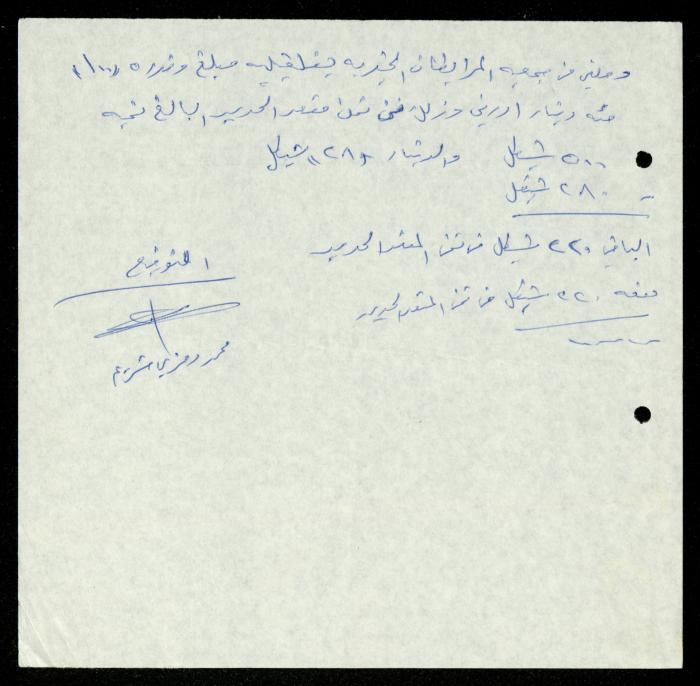 وصلني من جمعيه المرابطات الخيريه بقلقيليه مبلغ وقدره (١٠٠)
مئه دينار اردني وذلك من ثمن مقعد الحديد البالغ قيمته
٥٠٠ شيكل والدينار (٢٨٠) شيكل
- ٢٨٠ شيكل
الباقي ٢٢٠ شيكل من ثمن المقعد الحديد
دفعه ٢٢٠ شيكل من ثمن المقعد الحديد
التوقيع
محمد رمزي